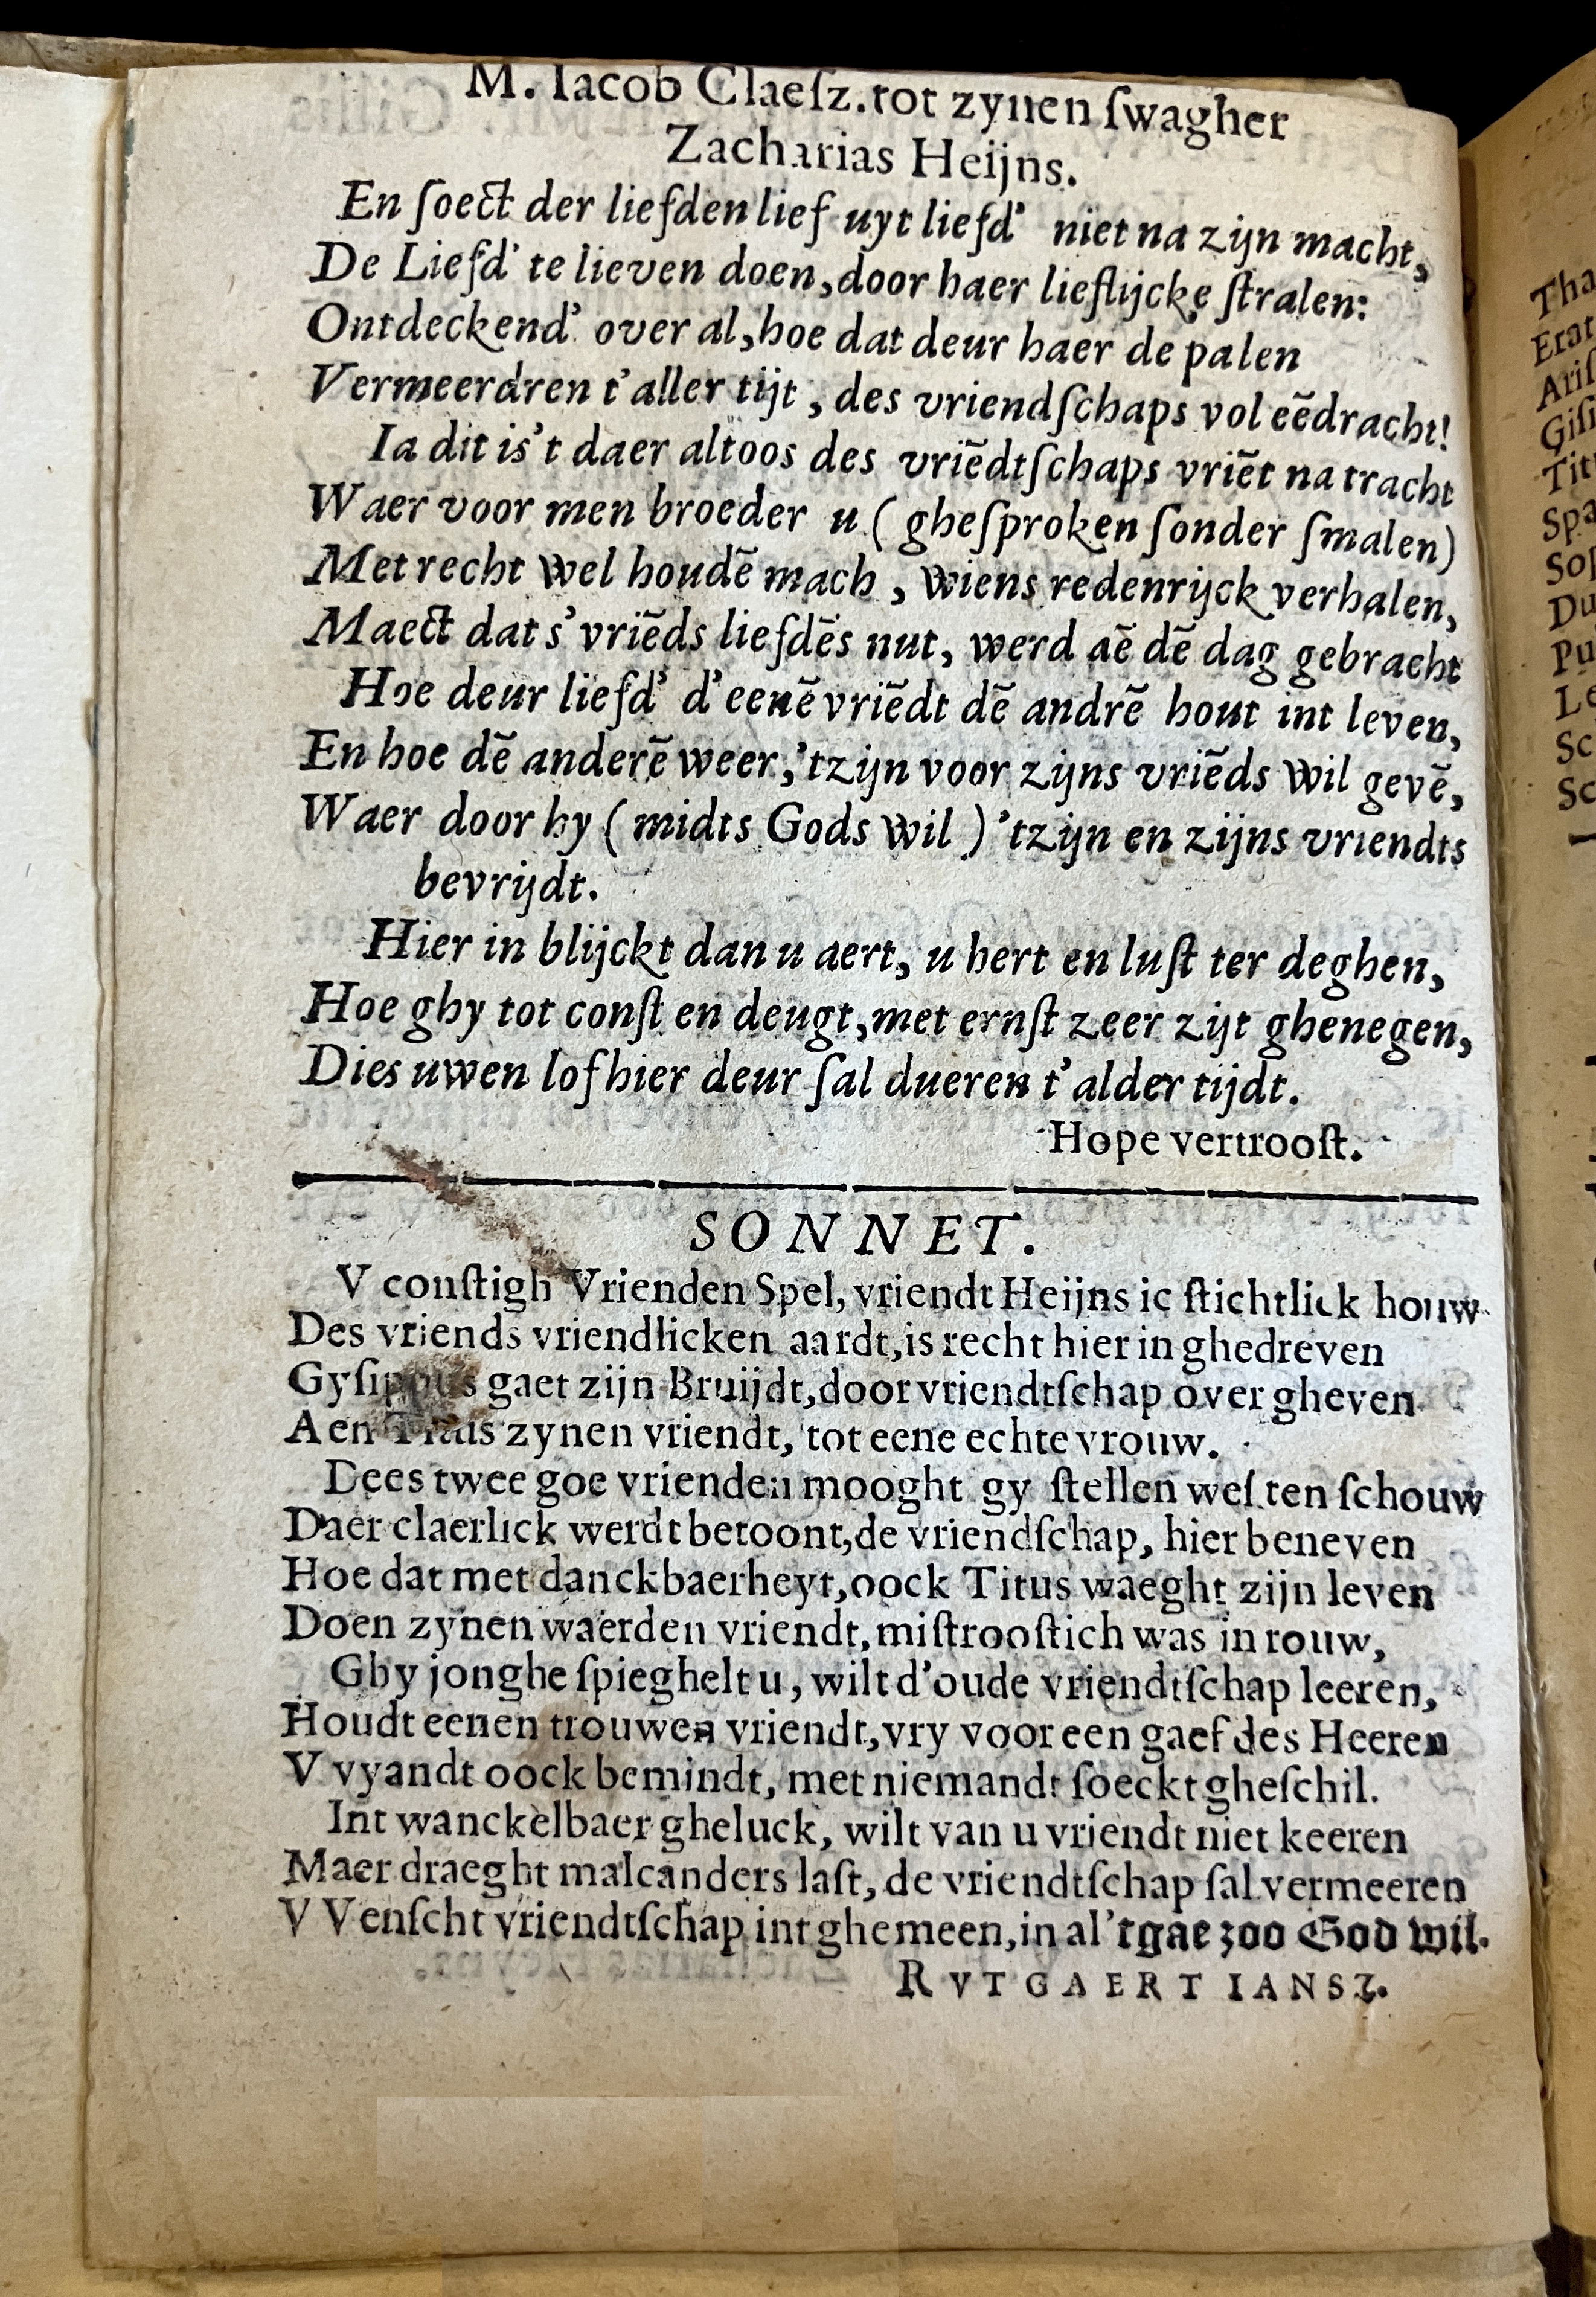 M. Iacob Claeſz. tot zynen ſwagher
Zacharias Heijns.
En ſoect der liefden lief uyt liefd' niet na zijn macht,
De Liefd' te lieven doen, door haer lieflijcke ſtralen:
Ontdeckend' over al, hoe dat deur haer de palen
Vermeerdren t'aller tijt, des vriendſchaps vol eēdracht!
Ia dit is't daer altoos des vriēdtſchaps vriēt na tracht
Waer voor men broeder u (gheſproken ſonder ſmalen)
Met recht wel houdē mach, wiens redenrijck verhalen,
Maect dat s'vriēds liefdēs nut, werd aē dē dag gebracht
Hoe deur liefd' d'eenē vriēdt dē andrē hout int leven,
En hoe dē anderē weer, 'tzijn voor zijns vriēds wil gevē,
Waer door hy (midts Gods wil) 'tzijn en zijns vriendts
bevrijdt.
Hier in blijckt dan u aert, u hert en luſt ter deghen,
Hoe ghy tot conſt en deugt, met ernſt zeer zijt ghenegen,
Dies uwen lof hier deur ſal dueren t'alder tijdt.
Hope vertrooſt.
SONNET.
V conſtigh Vrienden Spel, vriendt Heijns ic ſtichtlick houw
Des vriends vriendlicken aardt, is recht hier in ghedreven
Gyſippus gaet zijn Bruijdt, door vriendtſchap over gheven
Aen Titus zynen vriendt, tot eene echte vrouw.
Dees twee goe vrienden mooght gy ſtellen wel ten ſchouw
Daer claerlick werdt betoont, de vriendſchap, hier beneven
Hoe dat met danckbaerheyt, oock Titus waeght zijn leven
Doen zynen waerden vriendt, miſtrooſtich was in rouw,
Ghy jonghe ſpieghelt u, wilt d'oude vriendtſchap leeren,
Houdt eenen trouwen vriendt, vry voor een gaef des Heeren
V vyandt oock bemindt, met niemandt ſoeckt gheſchil.
Int wanckelbaer gheluck, wilt van u vriendt niet keeren
Maer draeght malcanders laſt, de vriendtſchap ſal vermeeren
VVenſcht vriendtſchap int ghemeen, in al 'tgae zoo God wil.
RVTGAERT IANSZ.
Tha
Erat
Ariſ
Giſi
Tit
Spa
Sop
Du
Pu
Le
Sc
Sc